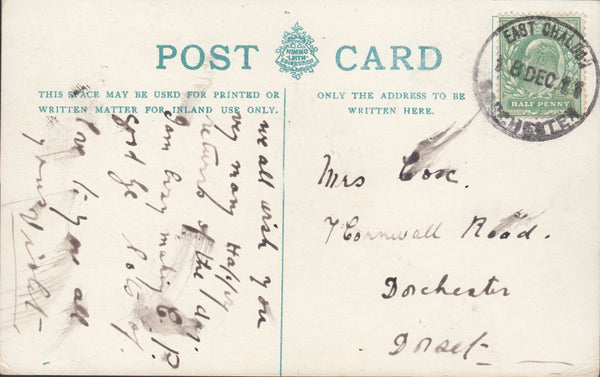 POST CARD
NIMMO
LEITH
EDINBURGH
THIS SPACE MAY BE USED FOR PRINTED OR
WRITTEN MATTER FOR INLAND USE ONLY.
ONLY THE ADDRESS TO BE
WRITTEN HERE.
EAST CHALDON
8 DEC 11
HALF PENNY
we all wish you
very many Happy
returns of the day.
I am busy making C.P.
lots of
love from us all
yours Violet
Mrs Cox.
7 Cornwall Road.
Dorchester
Dorset